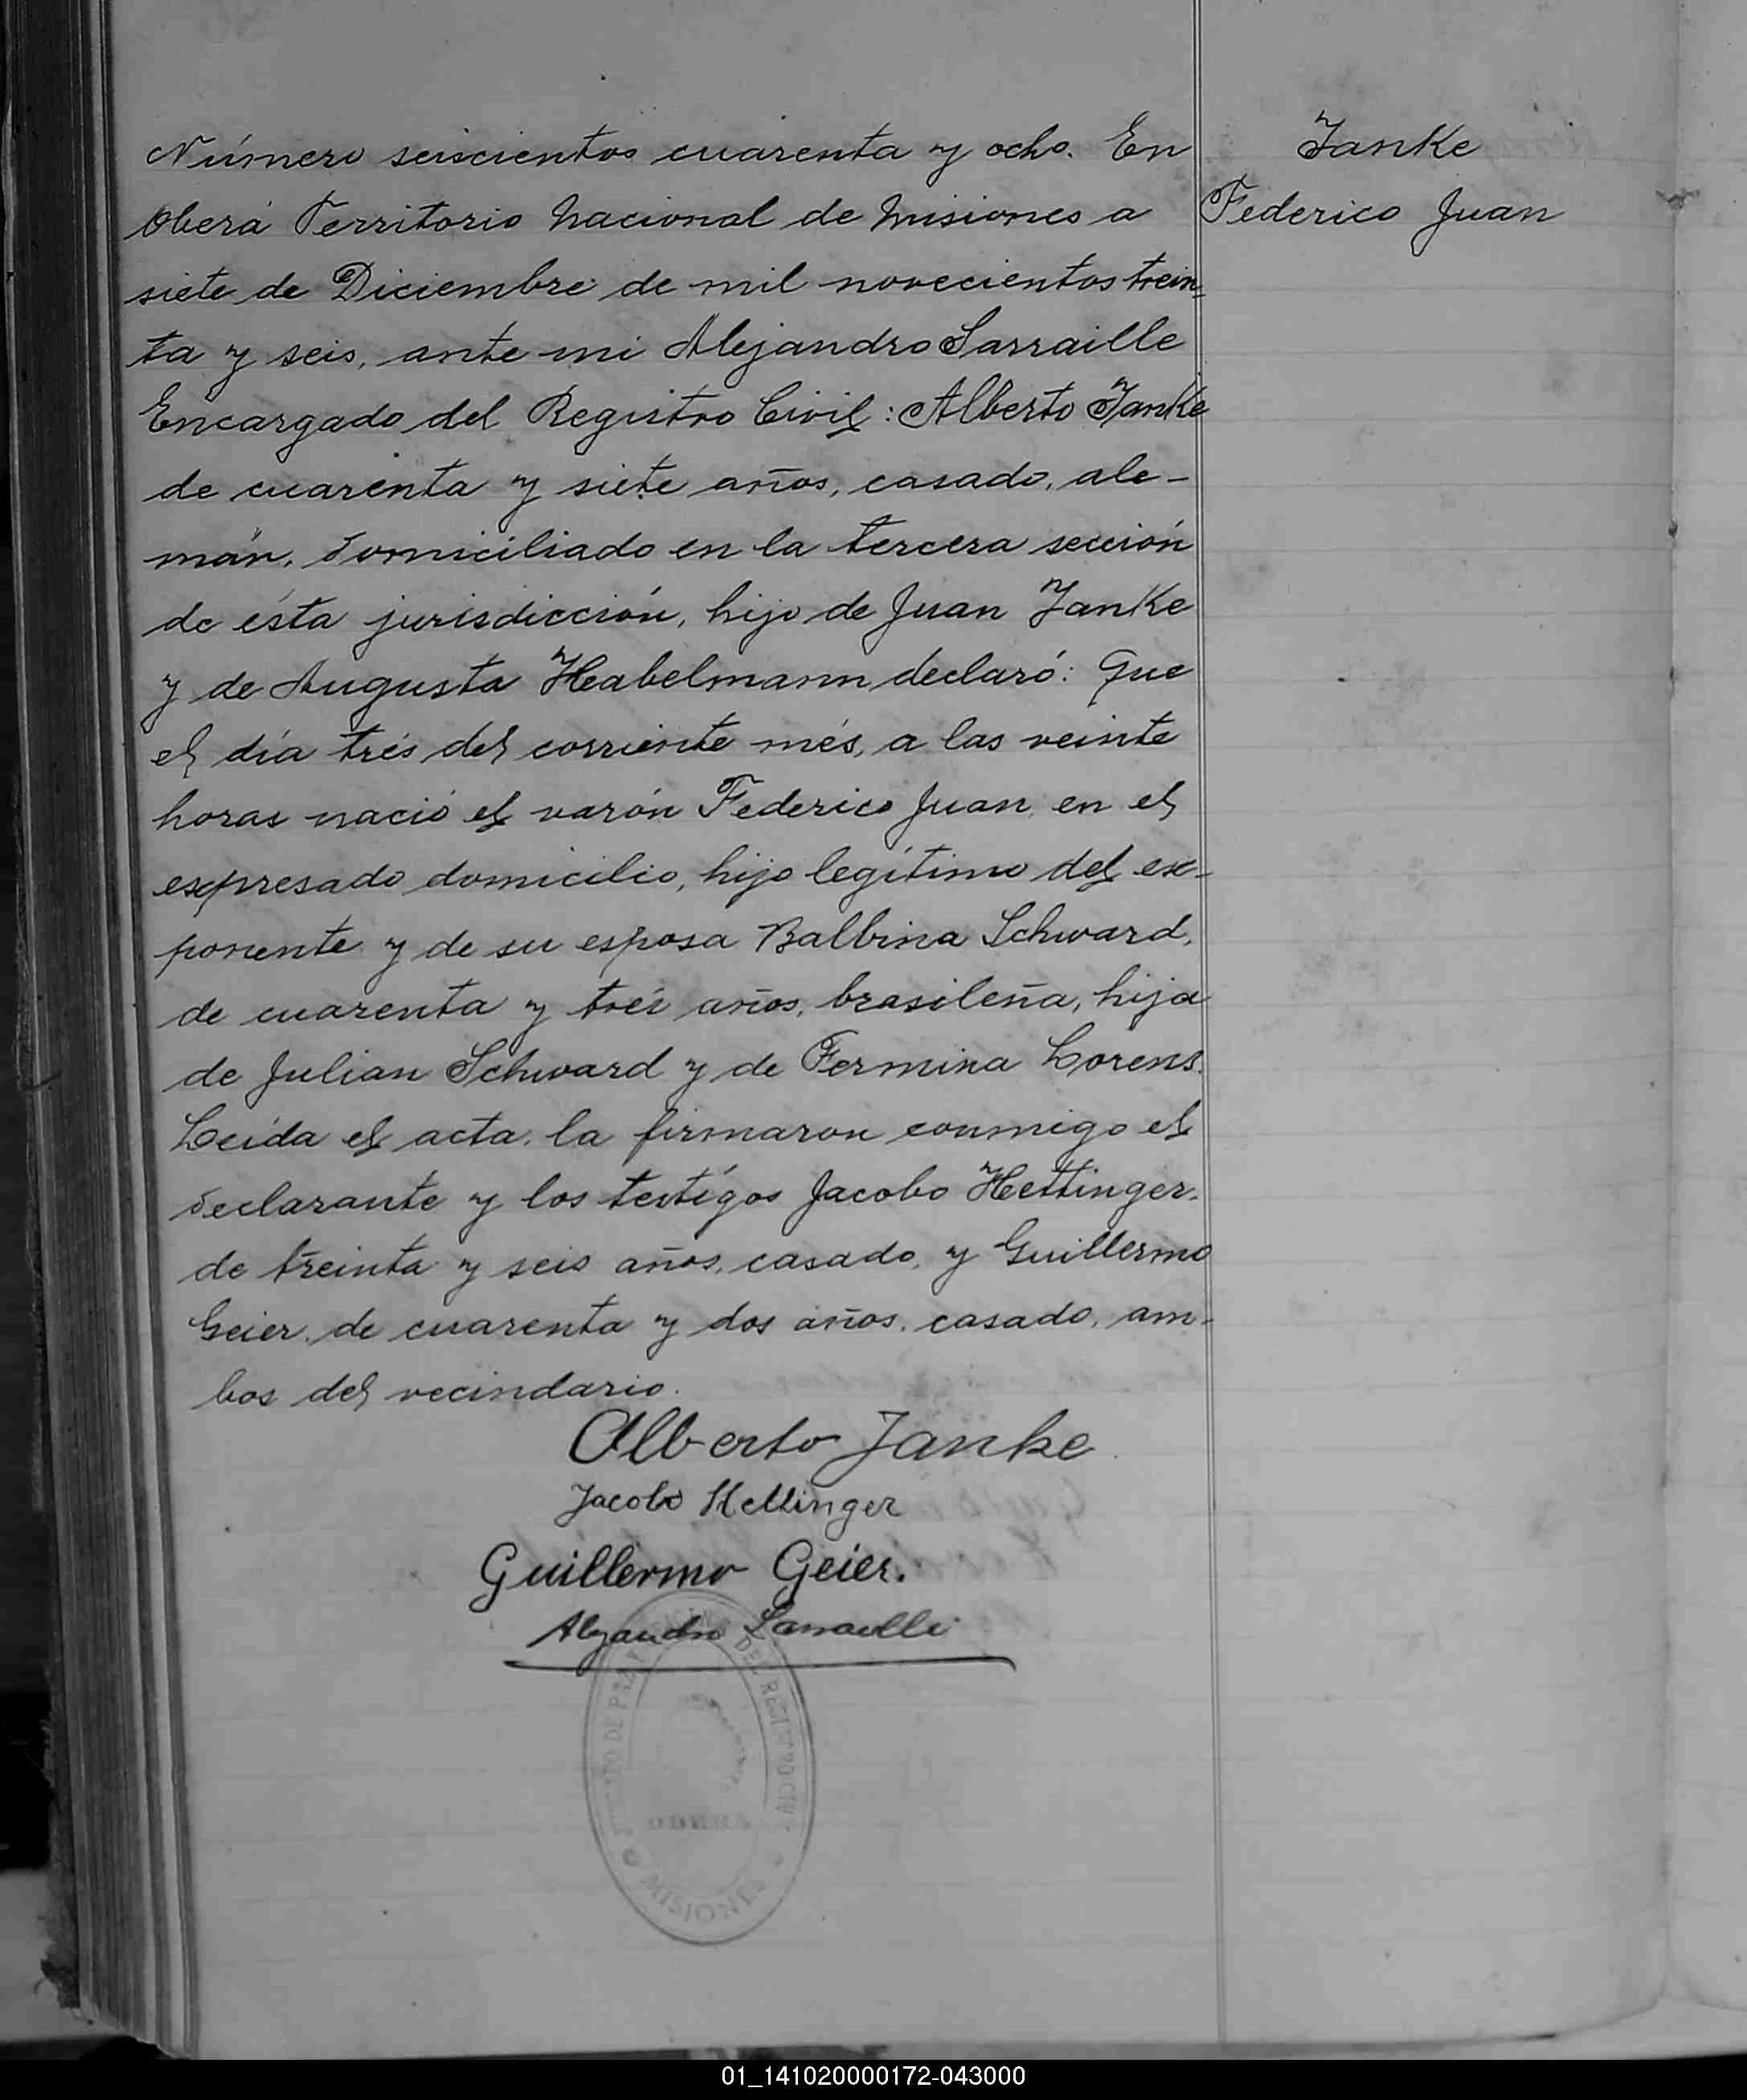 Número seiscientos cuarenta y ocho. En
Oberá Territorio Nacional de Misiones a
siete de Diciembre de mil novecientos trein-
ta y seis, ante mi Alejandro Sarraille
Encargado del Registro Civil: Alberto Janke
de cuarenta y siete años, casado, ale-
mán, domiciliado en la tercera sección
de ésta jurisdicción, hijo de Juan Janke
y de Augusta Heabelmann declaró: Que
el día trés del corriente més, a las veinte
horas nació el varón Federico Juan, en el
expresado domicilio, hijo legítimo del ex-
ponente y de su esposa Balbina Schward,
de cuarenta y trés años, brasileña, hija
de Julian Schward y de Fermina Lorens.
Leída el acta, la firmaron conmigo el
declarante y los testígos Jacobo Hettinger,
de treinta y seis años, casado, y Guillermo
Geier, de cuarenta y dos años, casado, am-
bos del vecindario.
Alberto Janke
Jacobo Hettinger
Guillermo Geier.
Alejandro Sarraille
DE PAZ Y DEL REGISTRO CIVIL
MISIONES
Janke
Federico Juan
01_141020000172-043000